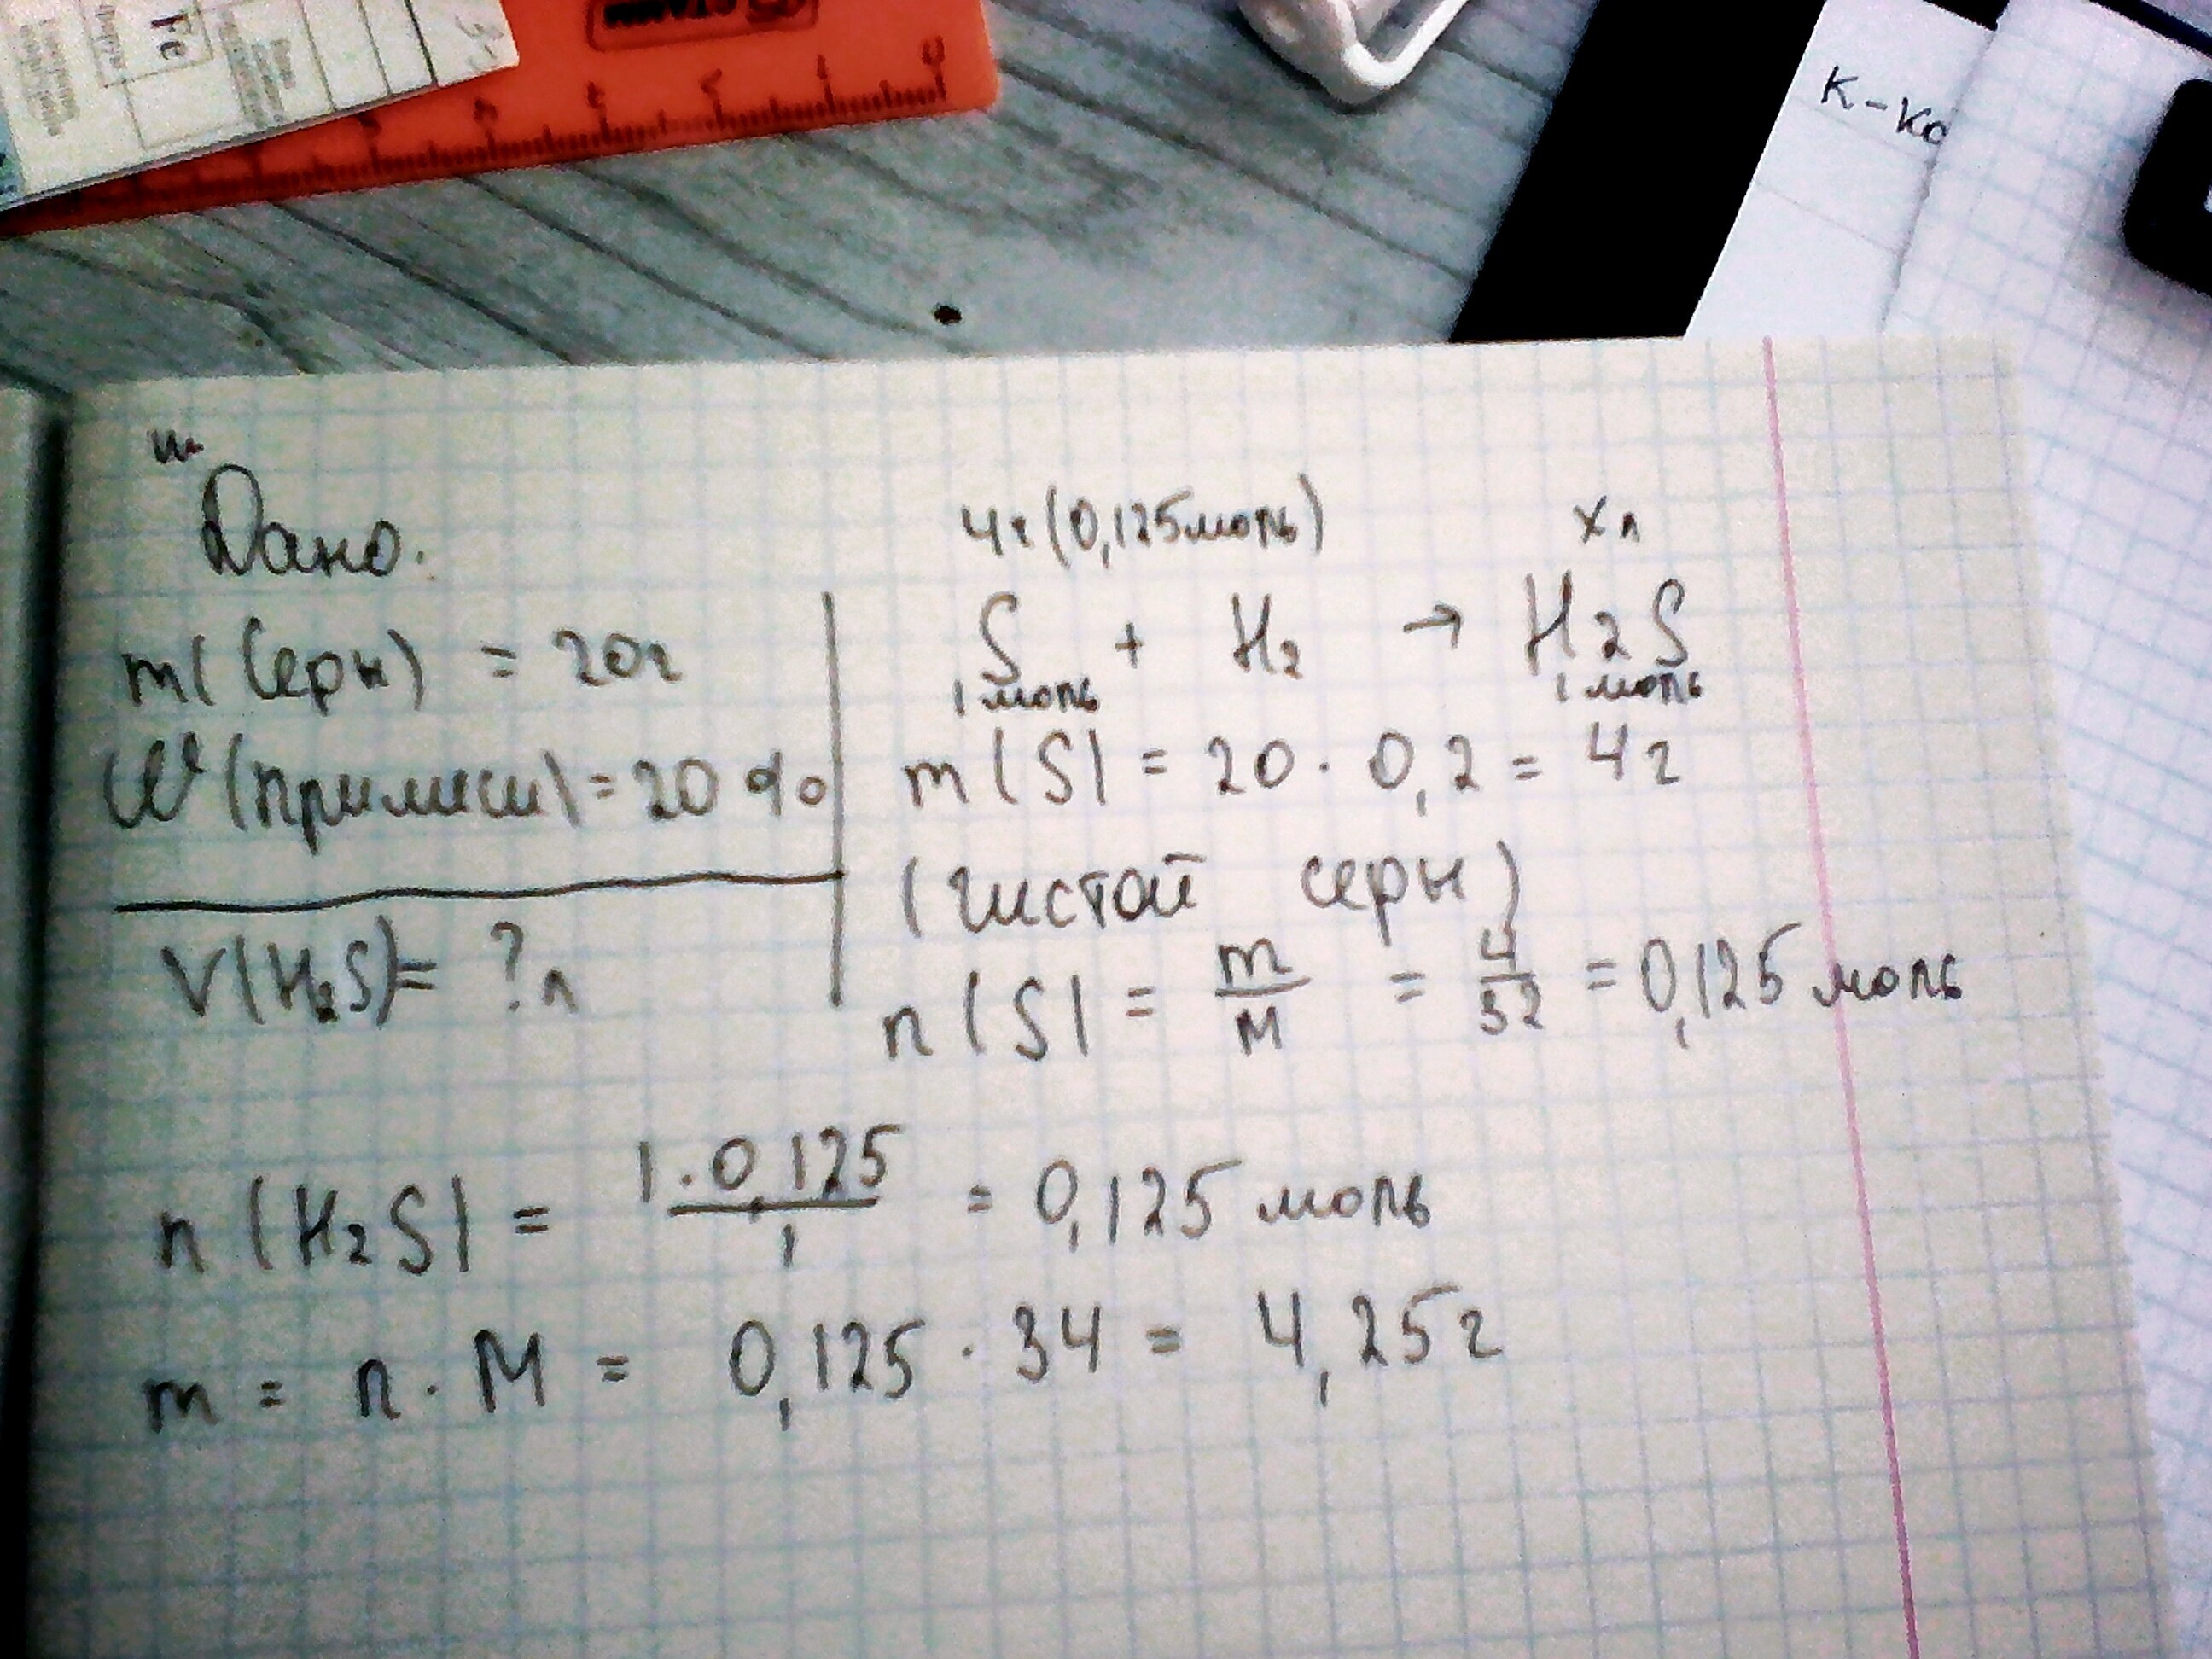 Fe
0
К-ко
Дано.
m(Серы) = 20г
W(примеси) = 20 %
V(H₂S) = ? л
4г (0,125моль) х л
S + H₂ → H₂S
1 моль 1 моль
m(S) = 20 · 0,2 = 4г
(чистой серы)
n(S) = m/M = 4/32 = 0,125 моль
n(H₂S) = 1·0,125/1 = 0,125 моль
m = n · M = 0,125 · 34 = 4,25г